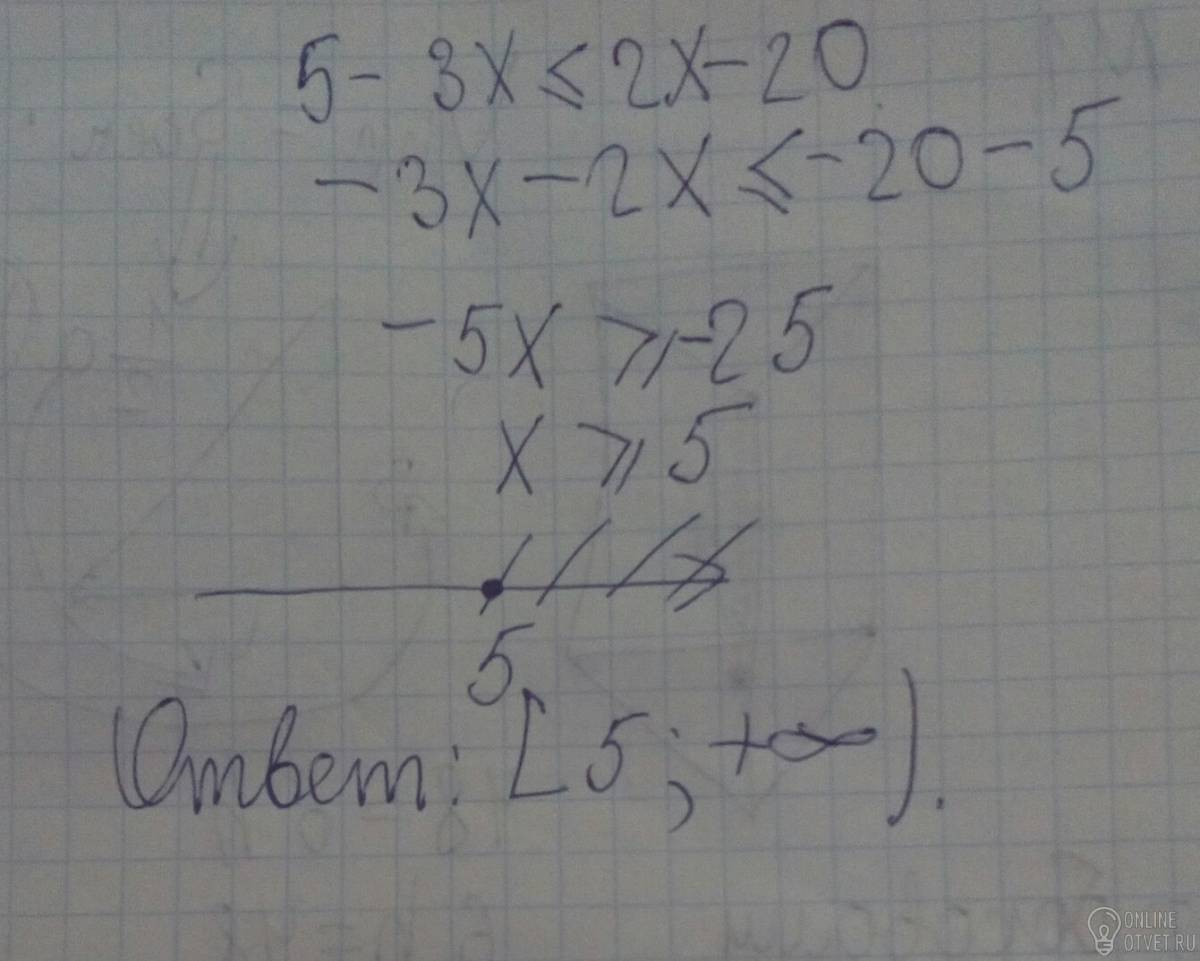 5 - 3x ⩽ 2x - 20
- 3x - 2x ⩽ - 20 - 5
- 5x ⩾ - 25
x ⩾ 5
5
Ответ: [5; +∞).
ONLINE
OTVET.RU